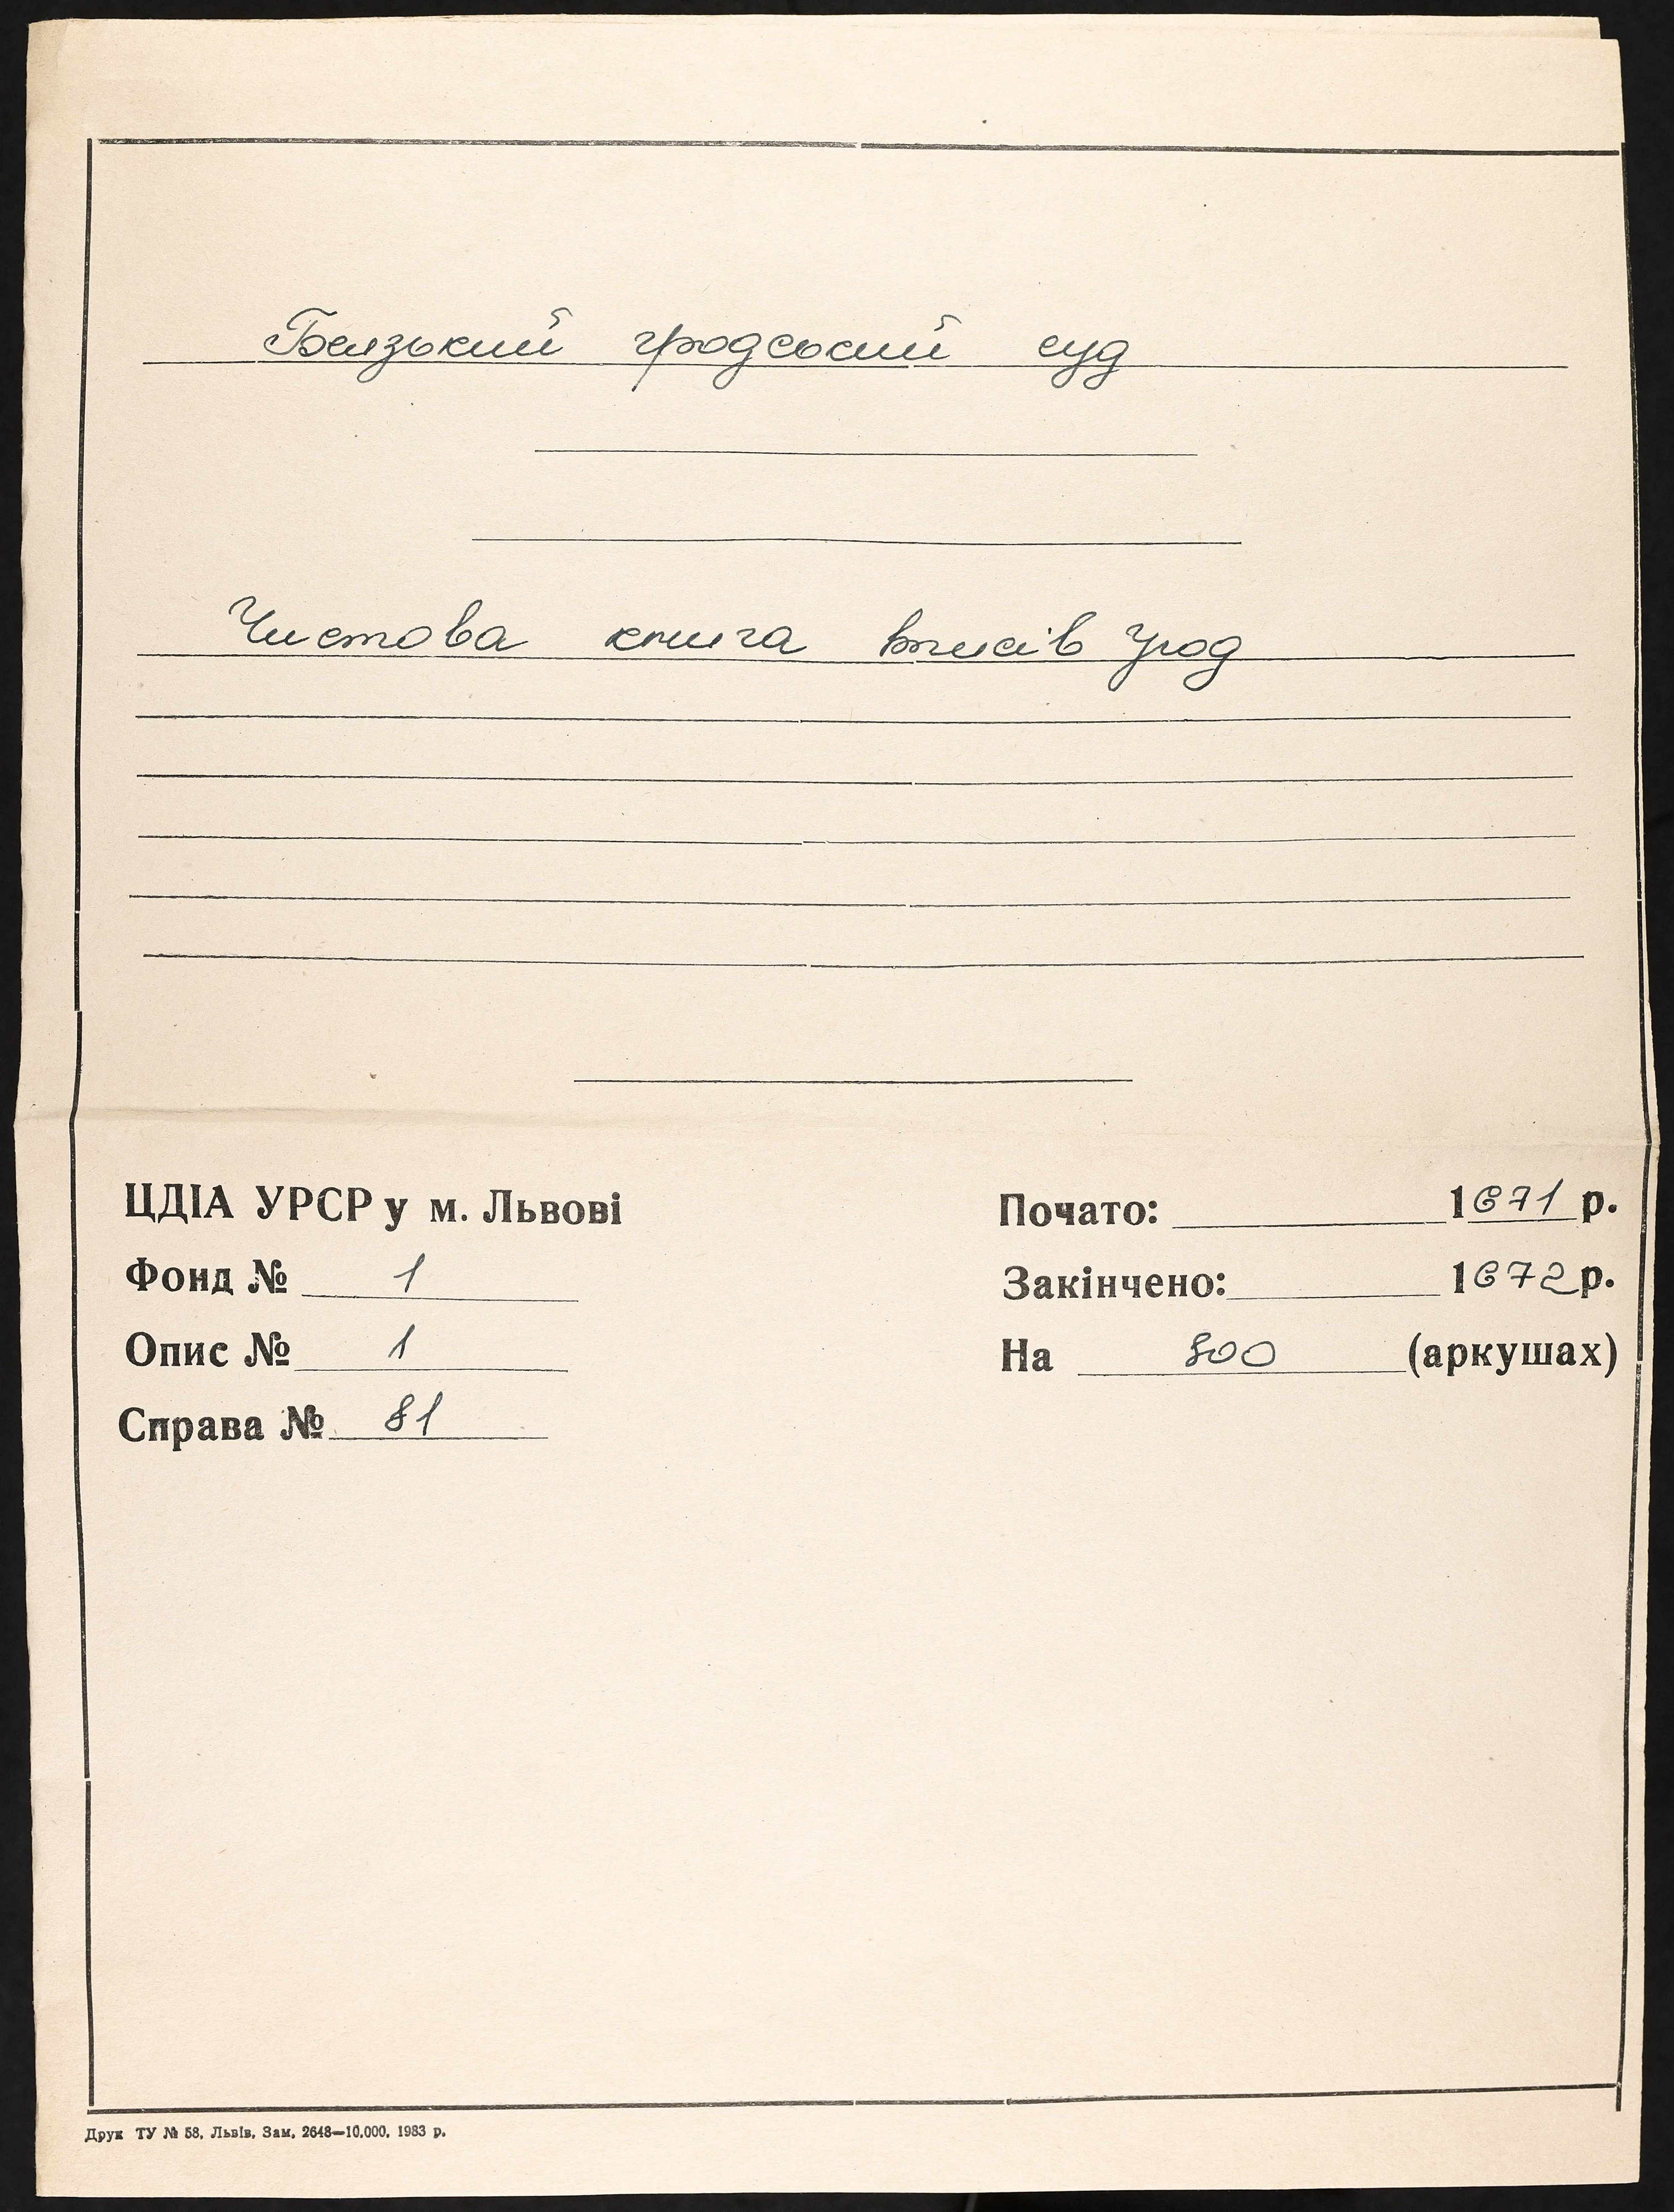 Белзький гродський суд
Чистова книга вписів угод
ЦДІА УРСР у м. Львові
Фонд № 1
Опис № 1
Справа № 81
Почато: 1671 р.
Закінчено: 1672 р.
На 800 (аркушах)
Друк ТУ № 58, Львів, Зам. 2648—10.000. 1983 р.